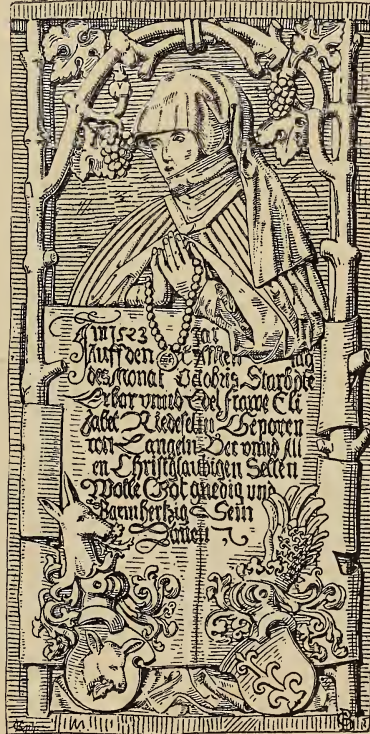 Im 1523 Jar
Auff den
des Monat Octobris Starb die
Erbar vnnd Edel Frawe Eli
zabet Riedeselin Geporen
von Langeln Der vnnd All
en Christglaubigen Sellen
Wolle Got gnedig vnd
Barmhertzig Sein
Amen